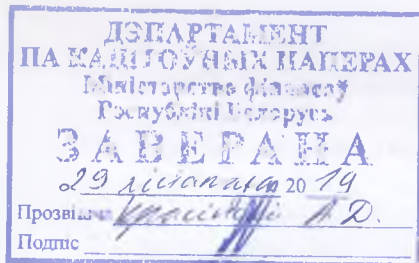 ДЭПАРТАМЕНТ
ПА КАШТОЎНЫХ ПАПЕРАХ
Міністэрства фінансаў
Рэспублікі Беларусь
ЗАВЕРАНА
29 лістапада 20 19
Прозвішча
Подпіс